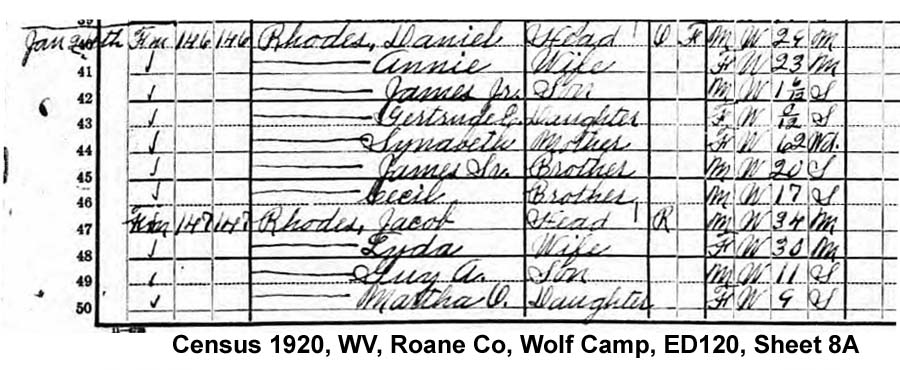 Jan 24th Fm 146 146 Rhodes, Daniel Head 1 O F M W 24 M
41 ✓ ——— Annie Wife F W 23 M
42 ✓ ——— James Jr. Son M W 1 6/12 S
43 ✓ ——— Gertrude E. Daughter F W /12 S
44 ✓ ——— Synabeth Mother F W 62 Wd.
45 ✓ ——— James Sr. Brother M W 20 S
46 ✓ ——— Cecil Brother M W 17 S
47 Fm 147 147 Rhodes, Jacob Head 1 R M W 34 M
48 ✓ ——— Lyda Wife F W 30 M
49 ✓ ——— Guy A. Son M W 11 S
50 ✓ ——— Martha O. Daughter F W 9 S
Census 1920, WV, Roane Co, Wolf Camp, ED120, Sheet 8A